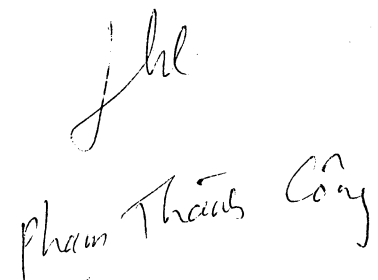 Phạm Thành Công